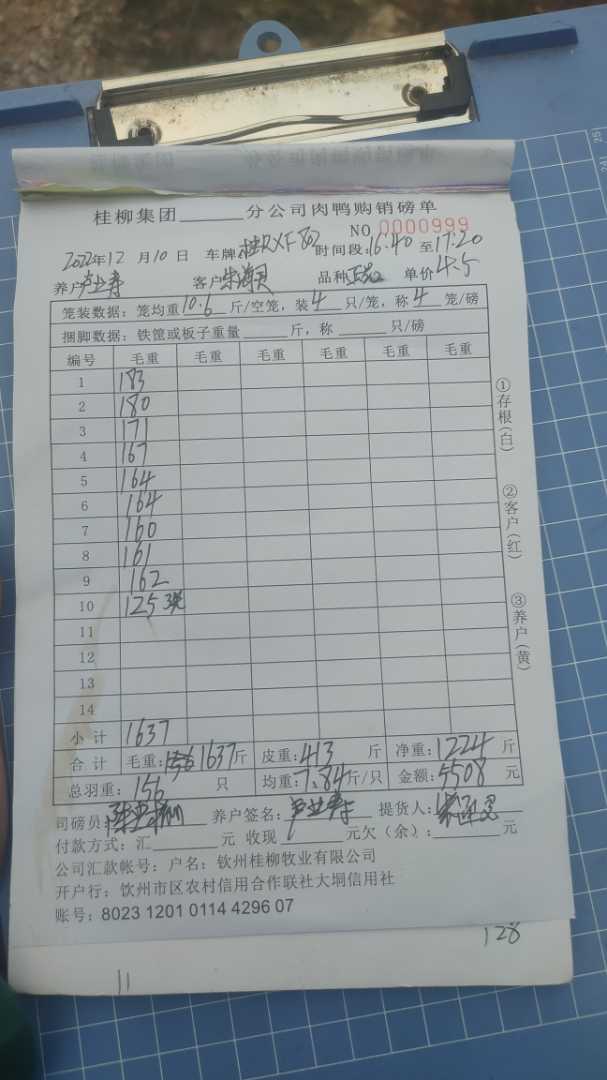 桂柳集团______分公司肉鸭购销磅单
NO 0000999
2022年12月10日 车牌:桂RXF802 时间段:16:40至17:20
养户 客户 品种 单价4.5
笼装数据:笼均重10.6斤/空笼,装4只/笼,称4笼/磅
捆脚数据:铁筐或板子重量______斤,称______只/磅
编号 毛重 毛重 毛重 毛重 毛重 毛重
1 183
2 180
3 171
4 167
5 164
6 164
7 160
8 161
9 162
10 125 3笼
11
12
13
14
小计 1637
合计 毛重:1637斤 皮重:413斤 净重:1224斤
总羽重:156只 均重:7.84斤/只 金额:5508元
司磅员: 养户签名: 提货人:
付款方式:汇______元 收现______元欠(余):______元
公司汇款帐号:户名:钦州桂柳牧业有限公司
开户行:钦州市区农村信用合作联社大垌信用社
账号:8023 1201 0114 4296 07
①存根(白)
②客户(红)
③养户(黄)
128
11